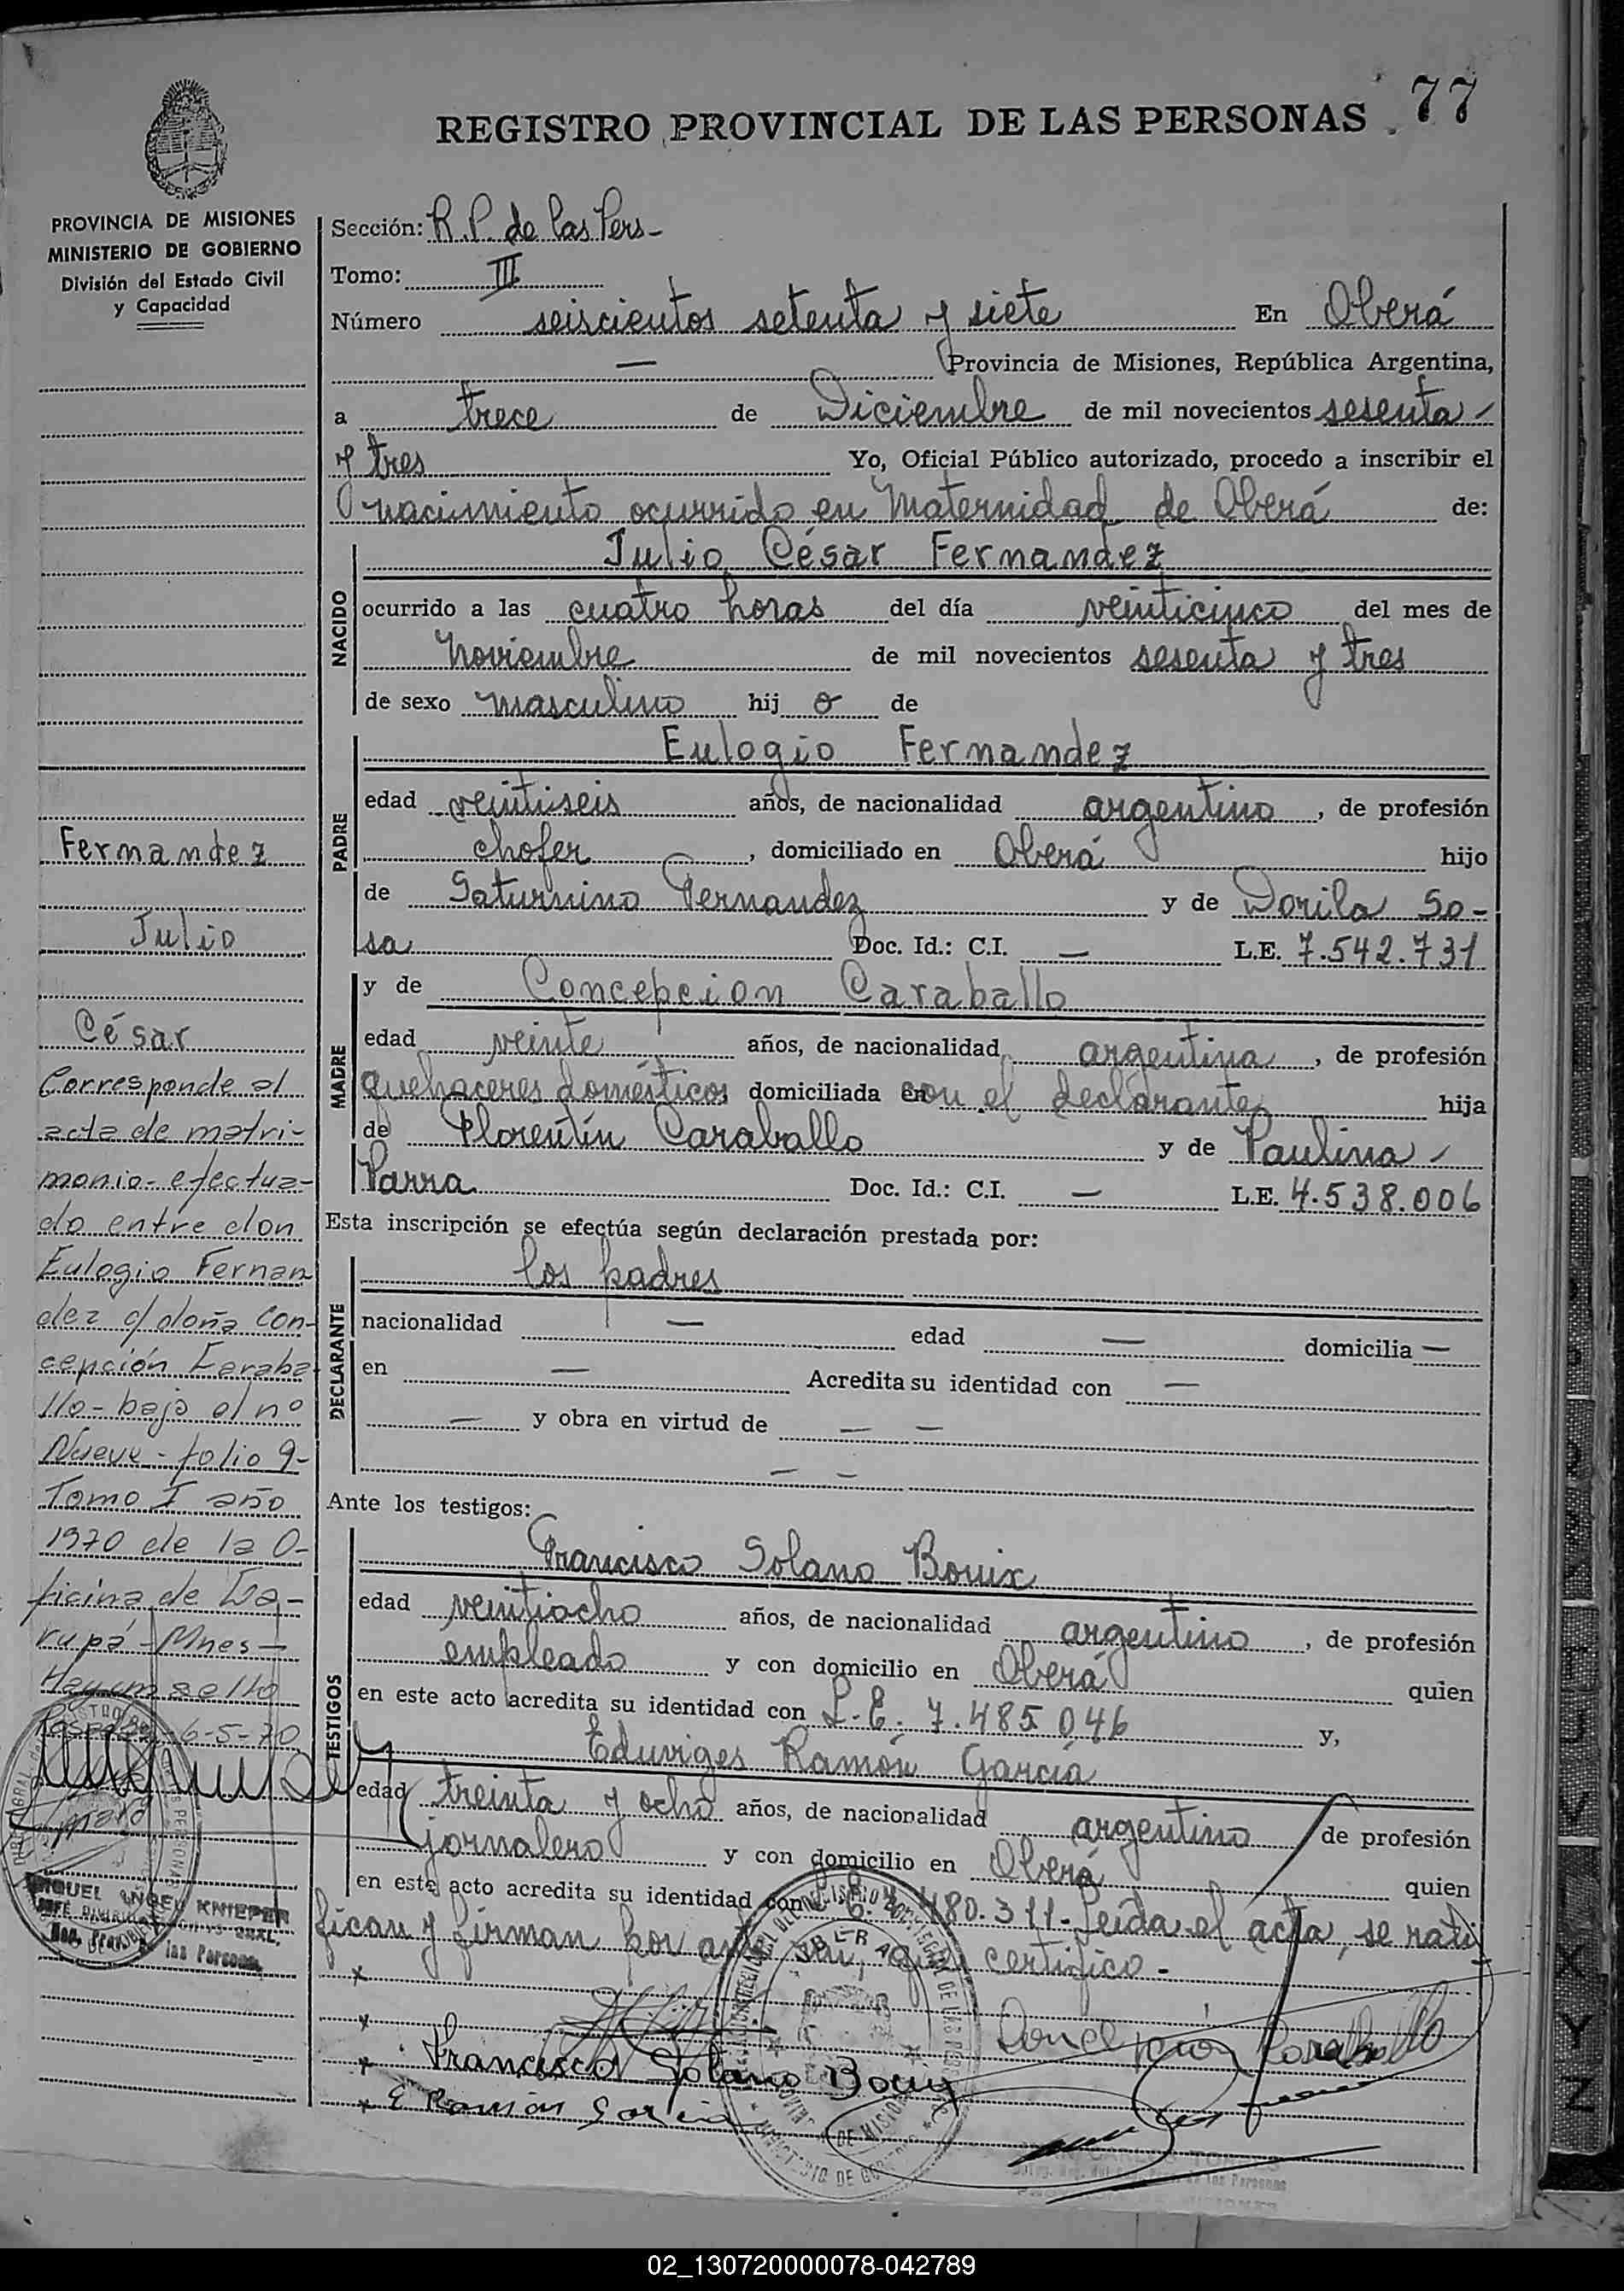 REGISTRO PROVINCIAL DE LAS PERSONAS 77
PROVINCIA DE MISIONES
MINISTERIO DE GOBIERNO
División del Estado Civil
y Capacidad
Fernandez
Julio
César
Corresponde al
acta de matri-
monio-efectua-
do entre don
Eulogio Fernan
dez c/ doña Con-
cepción Caraba
llo-bajo el nº
Nueve-folio 9-
Tomo I año
1970 de la O-
ficina de Ga-
rupá-Mnes-
6-5-70
MIGUEL ANGEL KNIEPER
las Personas
Sección: R.P. de las Pers-
Tomo: III
Número seiscientos setenta y siete En Oberá
— Provincia de Misiones, República Argentina,
a trece de Diciembre de mil novecientos sesenta -
y tres Yo, Oficial Público autorizado, procedo a inscribir el
nacimiento ocurrido en Maternidad de Oberá de:
NACIDO
Julio César Fernandez
ocurrido a las cuatro horas del día veinticinco del mes de
Noviembre de mil novecientos sesenta y tres
de sexo masculino hij o de
PADRE
Eulogio Fernandez
edad veintiseis años, de nacionalidad argentino, de profesión
chofer, domiciliado en Oberá hijo
de Saturnino Fernandez y de Dorila So-
sa Doc. Id.: C.I. — L.E. 7.542.731
MADRE
y de Concepcion Caraballo
edad veinte años, de nacionalidad argentina, de profesión
quehaceres domésticos domiciliada con el declarante hija
de Florentín Caraballo y de Paulina -
Parra Doc. Id.: C.I. — L.E. 4.538.006
Esta inscripción se efectúa según declaración prestada por:
DECLARANTE
los padres
nacionalidad — edad — domicilia —
en — Acredita su identidad con —
— y obra en virtud de — —
— —
Ante los testigos:
TESTIGOS
Francisco Solano Bouix
edad veintiocho años, de nacionalidad argentino, de profesión
empleado y con domicilio en Oberá quien
en este acto acredita su identidad con L.E. 7.485.046 y,
Eduviges Ramón García
edad treinta y ocho años, de nacionalidad argentino de profesión
jornalero y con domicilio en Oberá quien
en este acto acredita su identidad con 480.311- Leída el acta, se rati
fican y firman por ante mi, que certifico -
x
x Concepción Caraballo
x Francisco Solano Bouix
x E Ramón Garcia
02_130720000078-042789